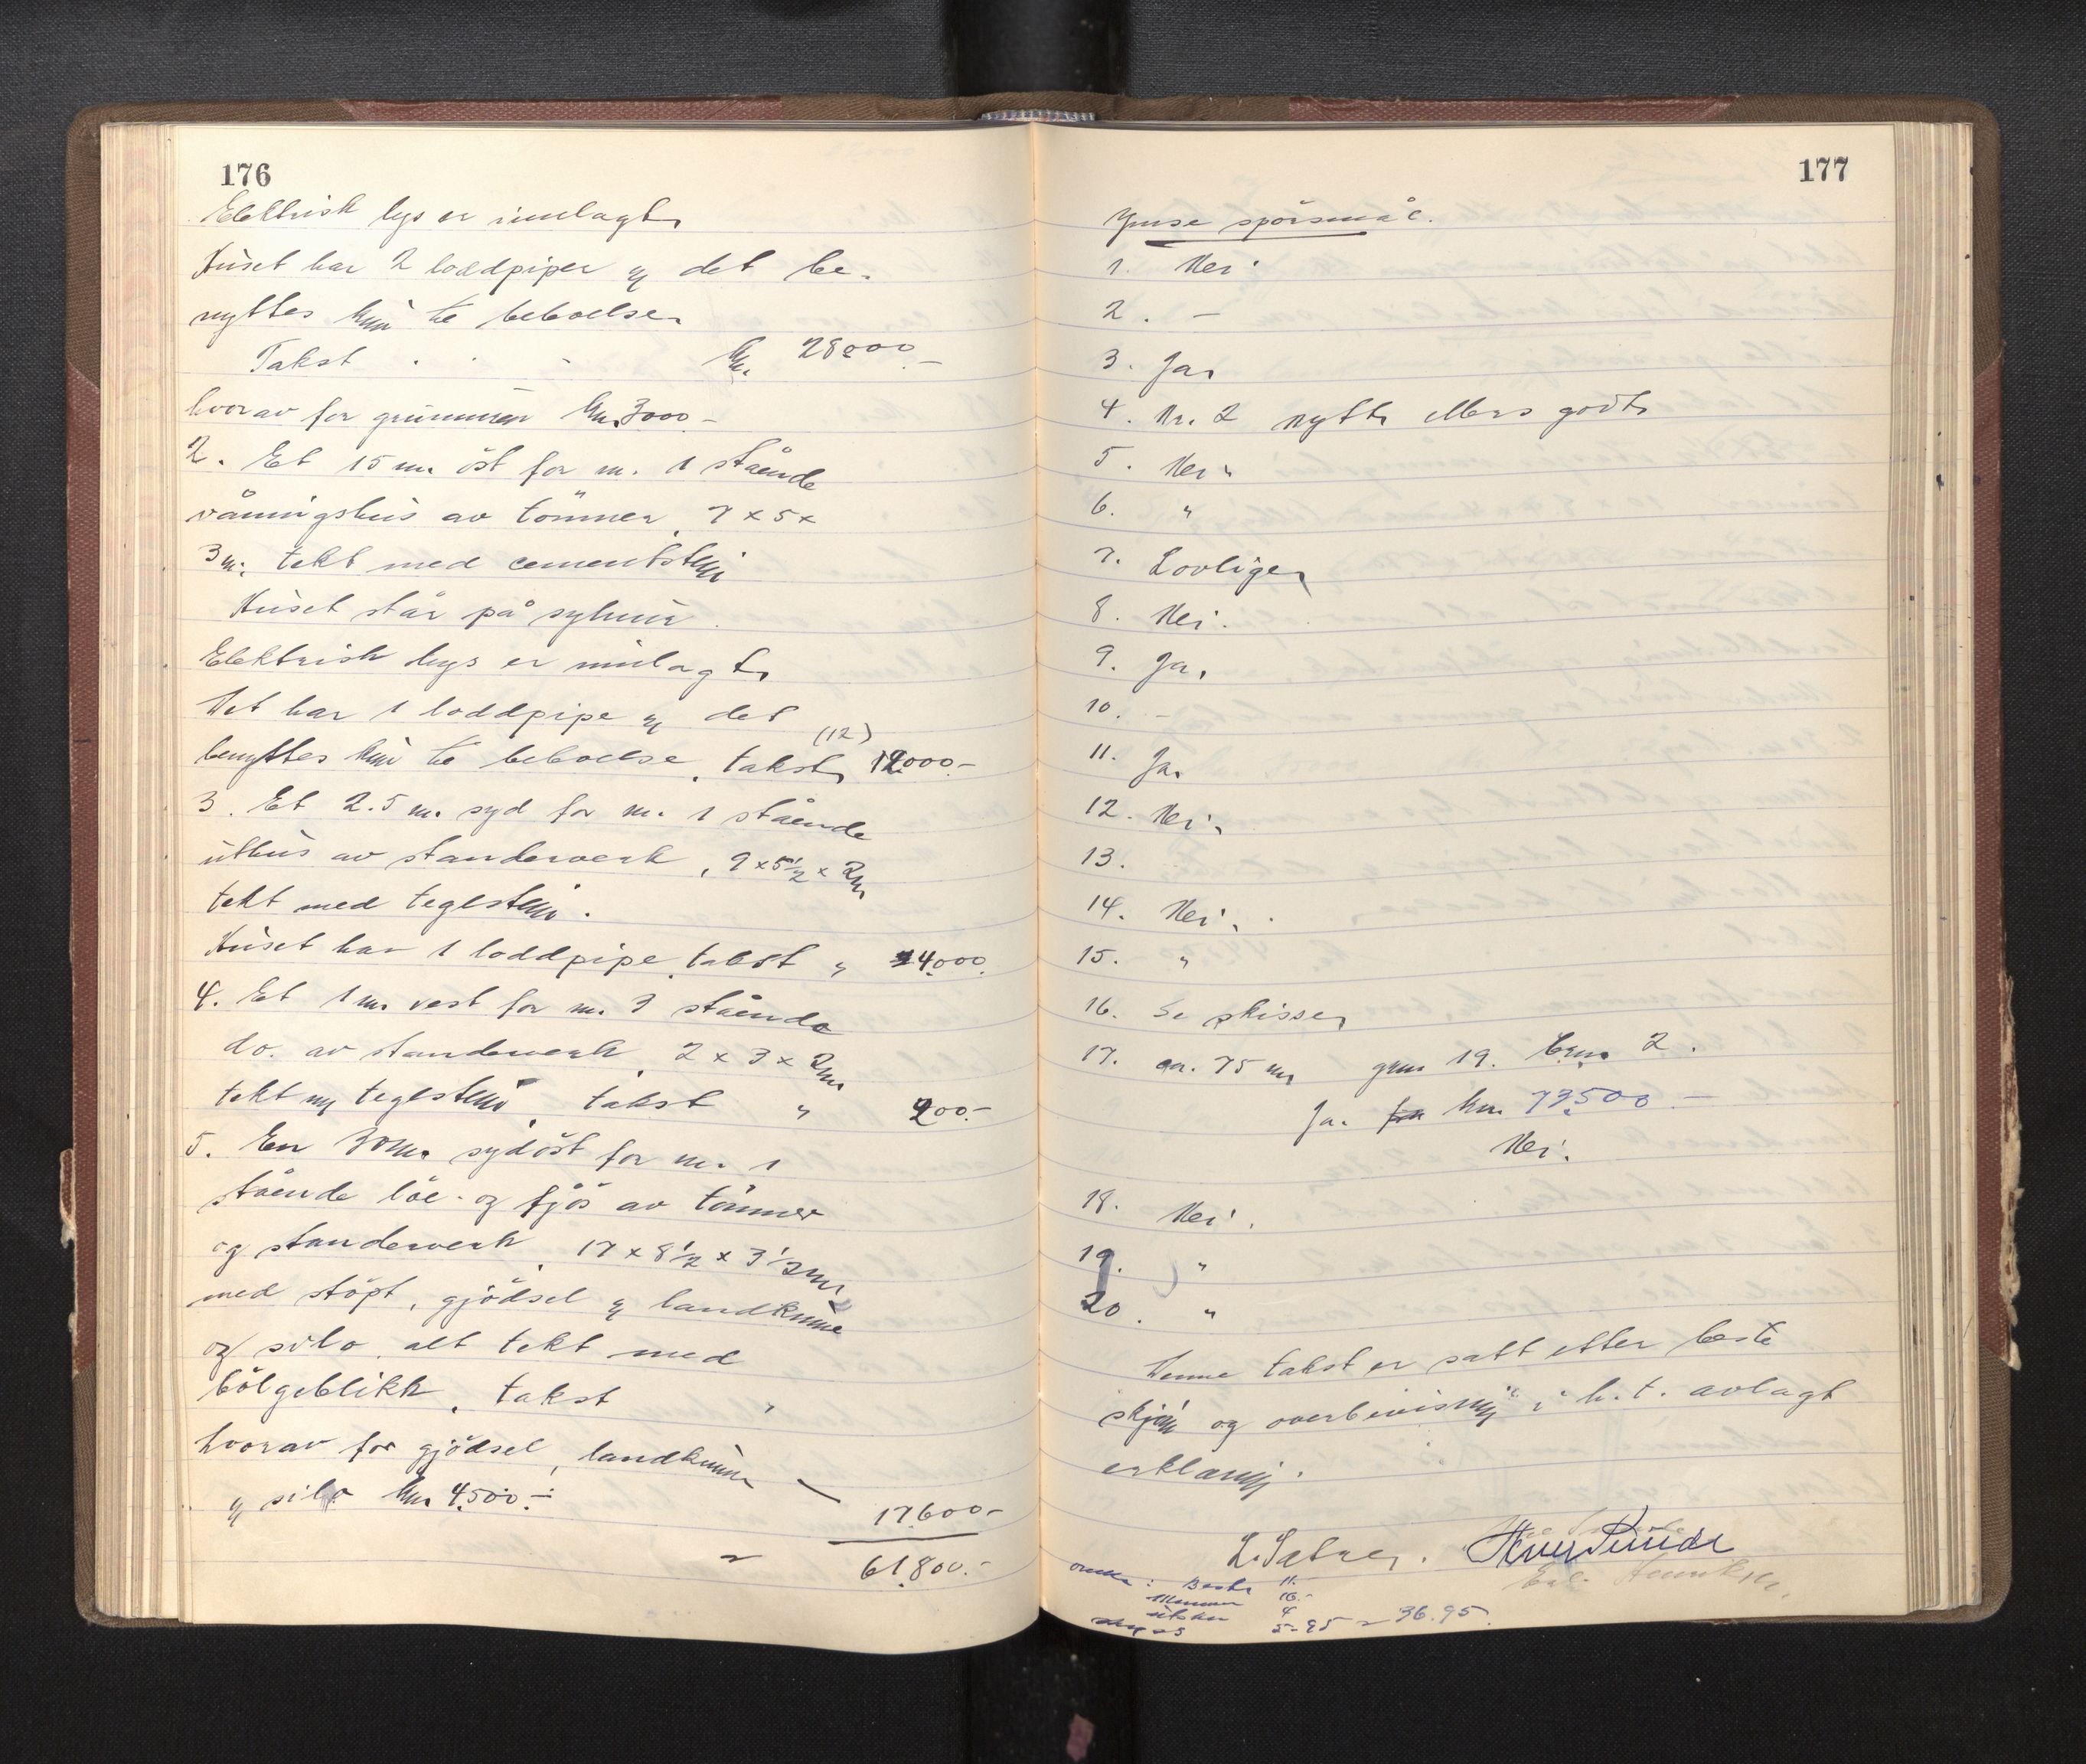 176
Elektrisk lys er innlagt.
Huset har 2 loddpiper og det be-
nyttes kun til beboelse.
Takst . . . kr. 28000.-
hvorav for grunmur kr. 3000.-
2. Et 15 m. öst for nr. 1 stående
våningshus av tömmer, 7 x 5 x
3 m. tekt med cementstein
Huset står på sylmur.
Elektrisk lys er innlagt.
Det har 1 loddpipe og det
(12)
benyttes kun til beboelse, takst, 12000.-
3. Et 2.5 m. syd for nr. 1 stående
uthus av standerverk, 9 x 5 1/2 x 2 m
tekt med teglstein.
Huset har 1 loddpipe, takst " 4.000.
4. Et 1 m. vest for nr. 3 stående
do. av standerverk, 2 x 3 x 2 m
tekt m/ teglstein, takst " 200.-
5. En 30 m. sydöst for nr. 1
stående löe- og fjös av tömmer
og standerverk, 17 x 8 1/2 x 3 1/2 m
med stöpt, gjödsel og landkum
og silo, alt tekt med
bölgeblikk, takst "
hvorav for gjödsel, landkum
og silo kr. 4.500.-
17600.-
61.800.-
177
Ymse spörsmål.
1. Nei.
2. -
3. Ja.
4. Nr. 2 nytt, ellers godt.
5. Nei.
6. "
7. Lovlige.
8. Nei.
9. Ja.
10. -
11. Ja.
12. Nei.
13.
14. Nei.
15. "
16. Se skisse.
17. ca. 75 m. gnr. 19. brn. 2.
Ja. for kr. 73.500.-
Nei.
18. Nei.
19. "
20. "
Denne takst er satt efter beste
skjön og overbevisning i h.t. avlagt
erklæring.
L. Sætre.
5-95 = 36.95.